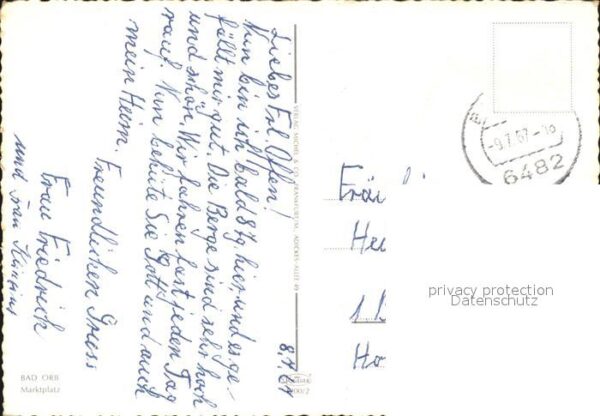 8.7.67
Liebes Frl. Offen!
Nun bin ich bald 8 Tg hier, und es ge-
fällt mir gut. Die Berge sind sehr hoch
und schön. Wir fahren fast jeden Tag
rauf. Nun behüte Sie Gott und auch
mein Heim,
Freundlichen Gruss
Frau Friedrich
und Frau
BAD ORB
Marktplatz
VERLAG MICHEL & CO., FRANKFURT/M.
-9.7.67-10
6482
Fräu
Hei
1
Ho
privacy protection
Datenschutz